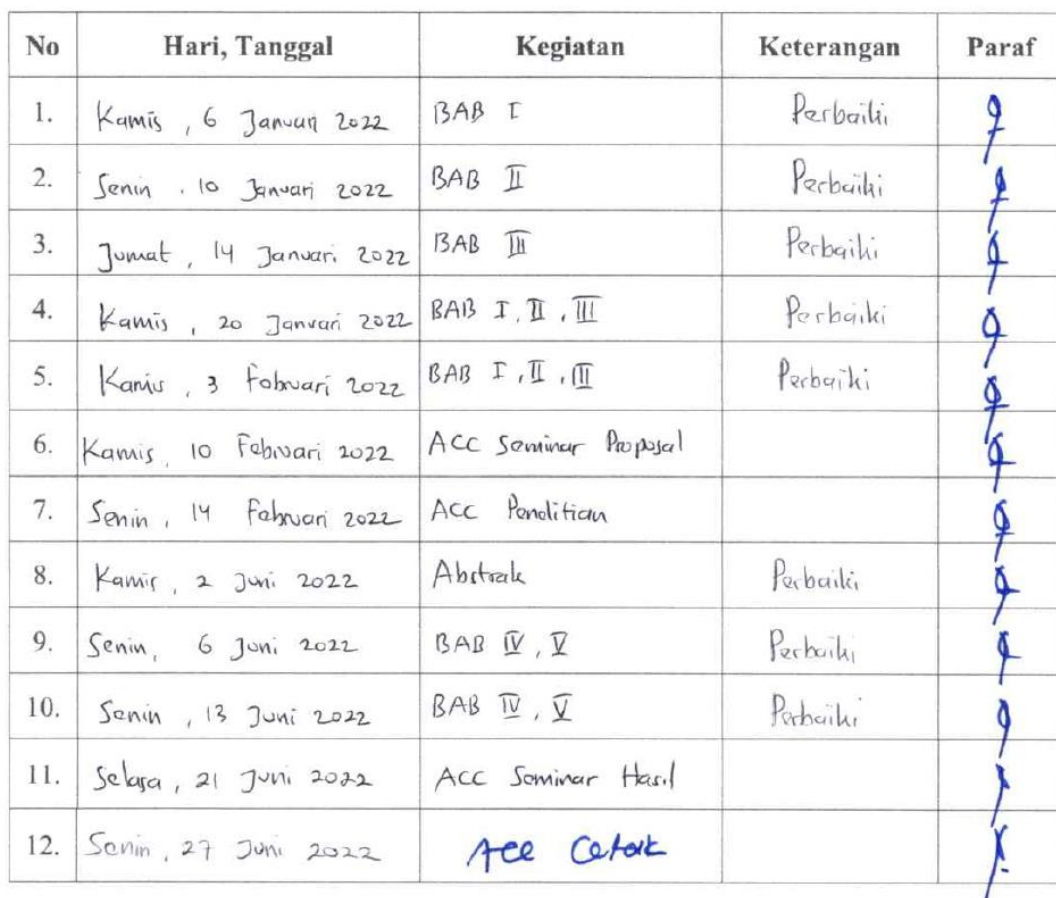 No Hari, Tanggal Kegiatan Keterangan Paraf
1. Kamis, 6 Januari 2022 BAB I Perbaiki
2. Senin, 10 Januari 2022 BAB II Perbaiki
3. Jumat, 14 Januari 2022 BAB III Perbaiki
4. Kamis, 20 Januari 2022 BAB I, II, III Perbaiki
5. Kamis, 3 Februari 2022 BAB I, II, III Perbaiki
6. Kamis, 10 Februari 2022 ACC Seminar Proposal
7. Senin, 14 Februari 2022 ACC Penelitian
8. Kamis, 2 Juni 2022 Abstrak Perbaiki
9. Senin, 6 Juni 2022 BAB IV, V Perbaiki
10. Senin, 13 Juni 2022 BAB IV, V Perbaiki
11. Selasa, 21 Juni 2022 ACC Seminar Hasil
12. Senin, 27 Juni 2022 Acc Cetak